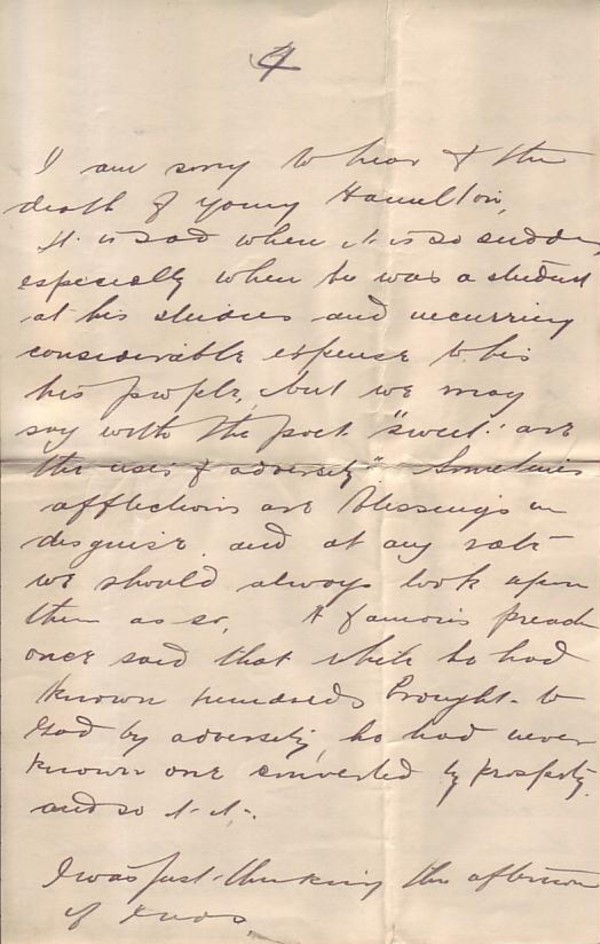 4
I am sorry to hear of the
death of young Hamilton,
It is sad when it is so sudden,
especially when he was a student
at his studies and incurring
considerable expense to his
his people, but we may
say with the poet "sweet are
the uses of adversity". Sometimes
afflictions are blessings in
disguise and at any rate
we should always look upon
them as so. A famous preach
once said that while he had
known hundreds brought to
God by adversity, he had never
known one converted by prosperity.
and so it is.
I was just thinking this afternoon
if